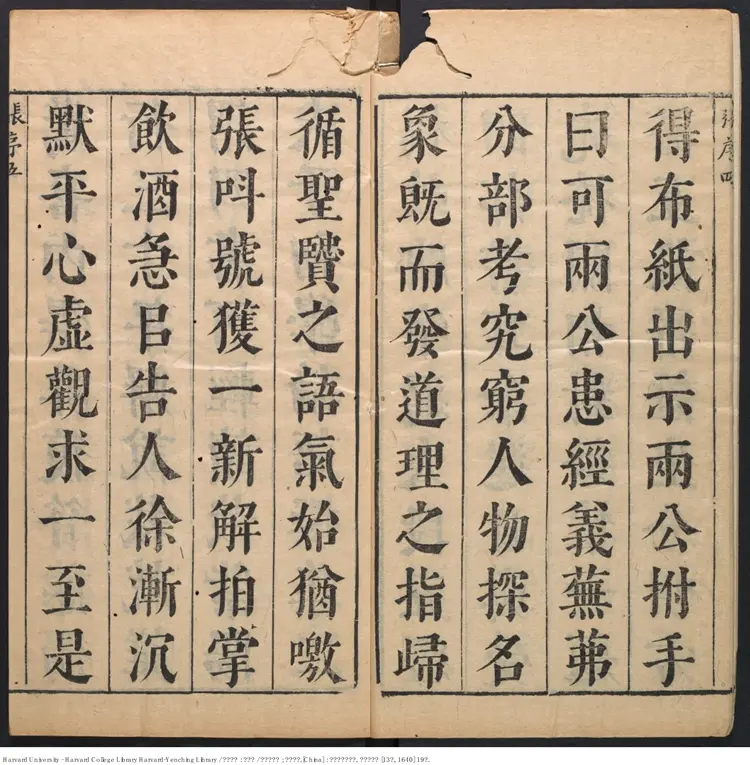 張序四
得布紙出示兩公拊手
曰可兩公患經義蕪茀
分部考究窮人物探名
象旣而發道理之指歸
循聖贒之語氣始猶噭
張呌號獲一新解拍掌
飲酒急㠯告人徐漸沉
默平心虛觀求一至是
張序五
Harvard University - Harvard College Library Harvard-Yenching Library / ???? : ??? / ????? ; ????. [China] : ???????, ????? [13?, 1640] 19?.